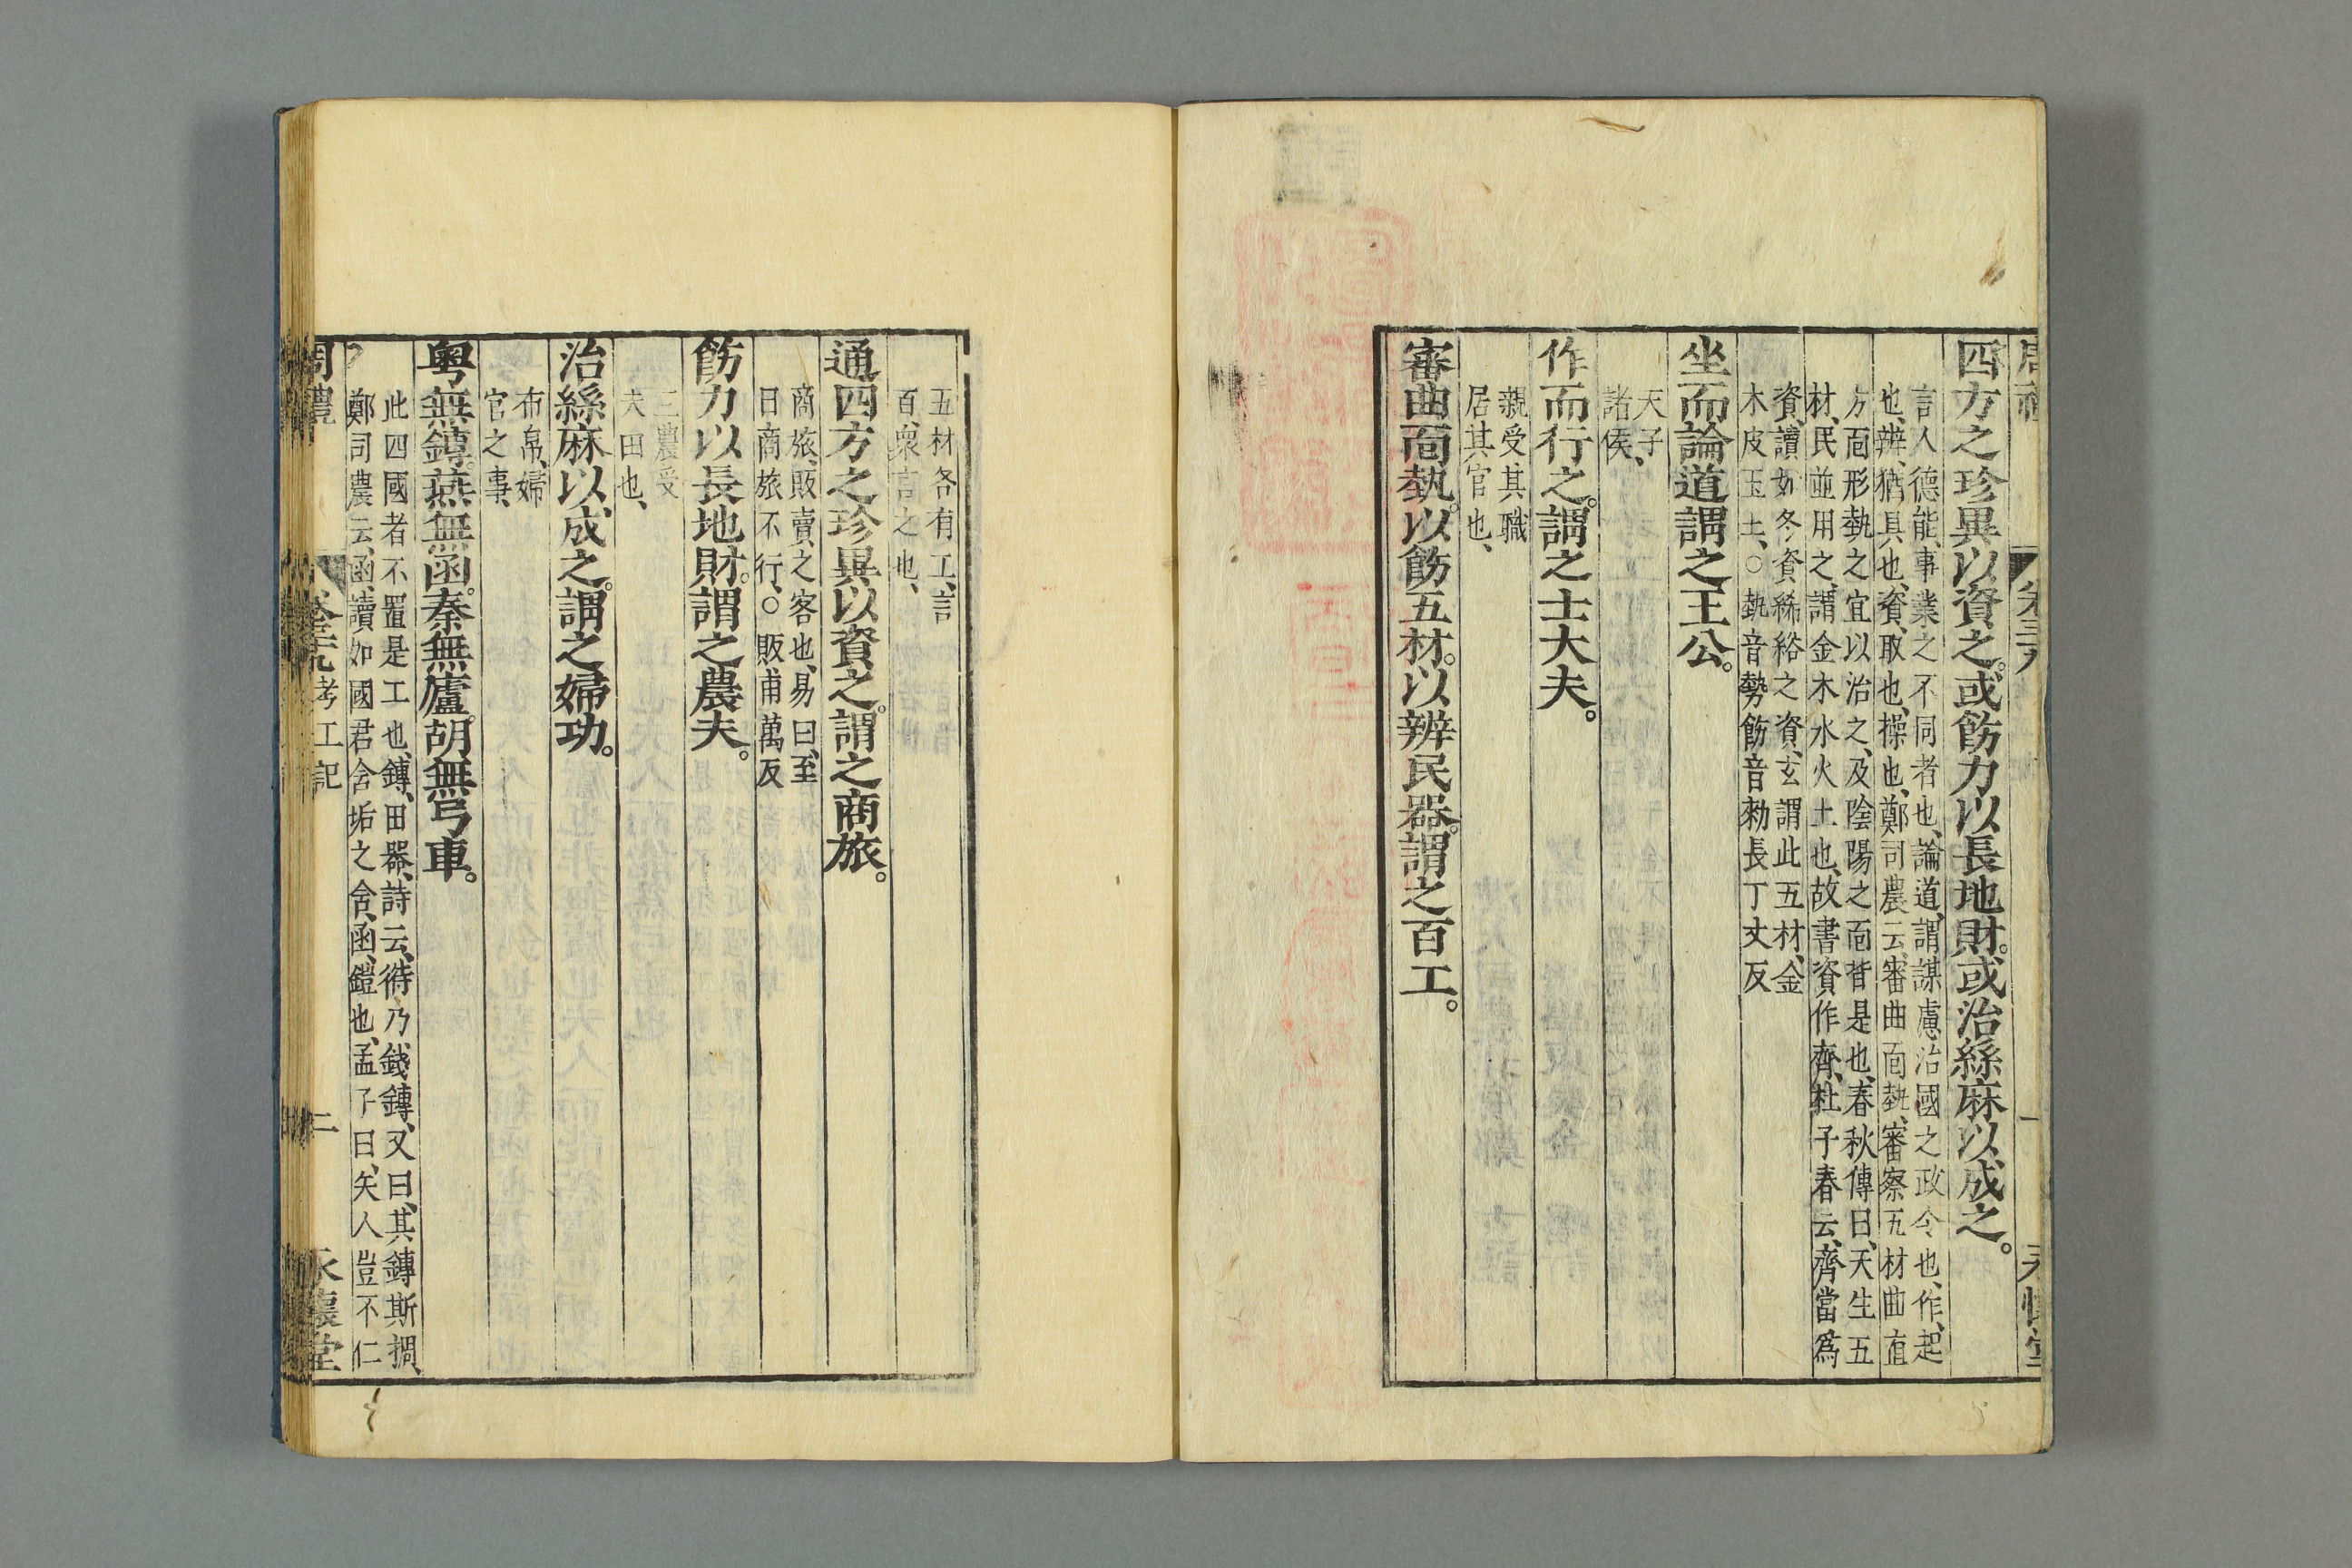 四方之珍異以資之。或飭力以長地財。或治絲麻以成之。
言人德能、事業之不同者也、論道、謂謀慮治國之政令也、作、起
也、辨、猶具也、資、取也、操也、鄭司農云、審曲面埶、審察五材曲直
方面形埶之宜以治之、及陰陽之面背是也、春秋傳曰、天生五
材、民並用之、謂金木水火土也、故書資作齊、杜子春云、齊當爲
資、讀如冬資絺綌之資、玄謂此五材、金
木皮玉土、○埶音勢飭音勑長丁丈反
坐而論道謂之王公。
天子
諸侯、
作而行之。謂之士大夫。
親受其職
居其官也、
審曲面埶。以飭五材。以辨民器。謂之百工。
五材各有工、言
百、衆言之也、
通四方之珍異以資之。謂之商旅。
商旅、販賣之客也、易曰、至
日商旅不行、○販甫萬反
飭力以長地財。謂之農夫。
三農受
夫田也、
治絲麻以成之。謂之婦功。
布帛、婦
官之事、
粤無鎛。燕無函。秦無廬。胡無弓車。
此四國者不置是工也、鎛、田器、詩云、偫乃錢鎛、又曰、其鎛斯搁、
鄭司農云、函、讀如國君含垢之含、函、鎧也、孟子曰、矢人豈不仁
周禮 卷三九 考工記 二 永懷堂